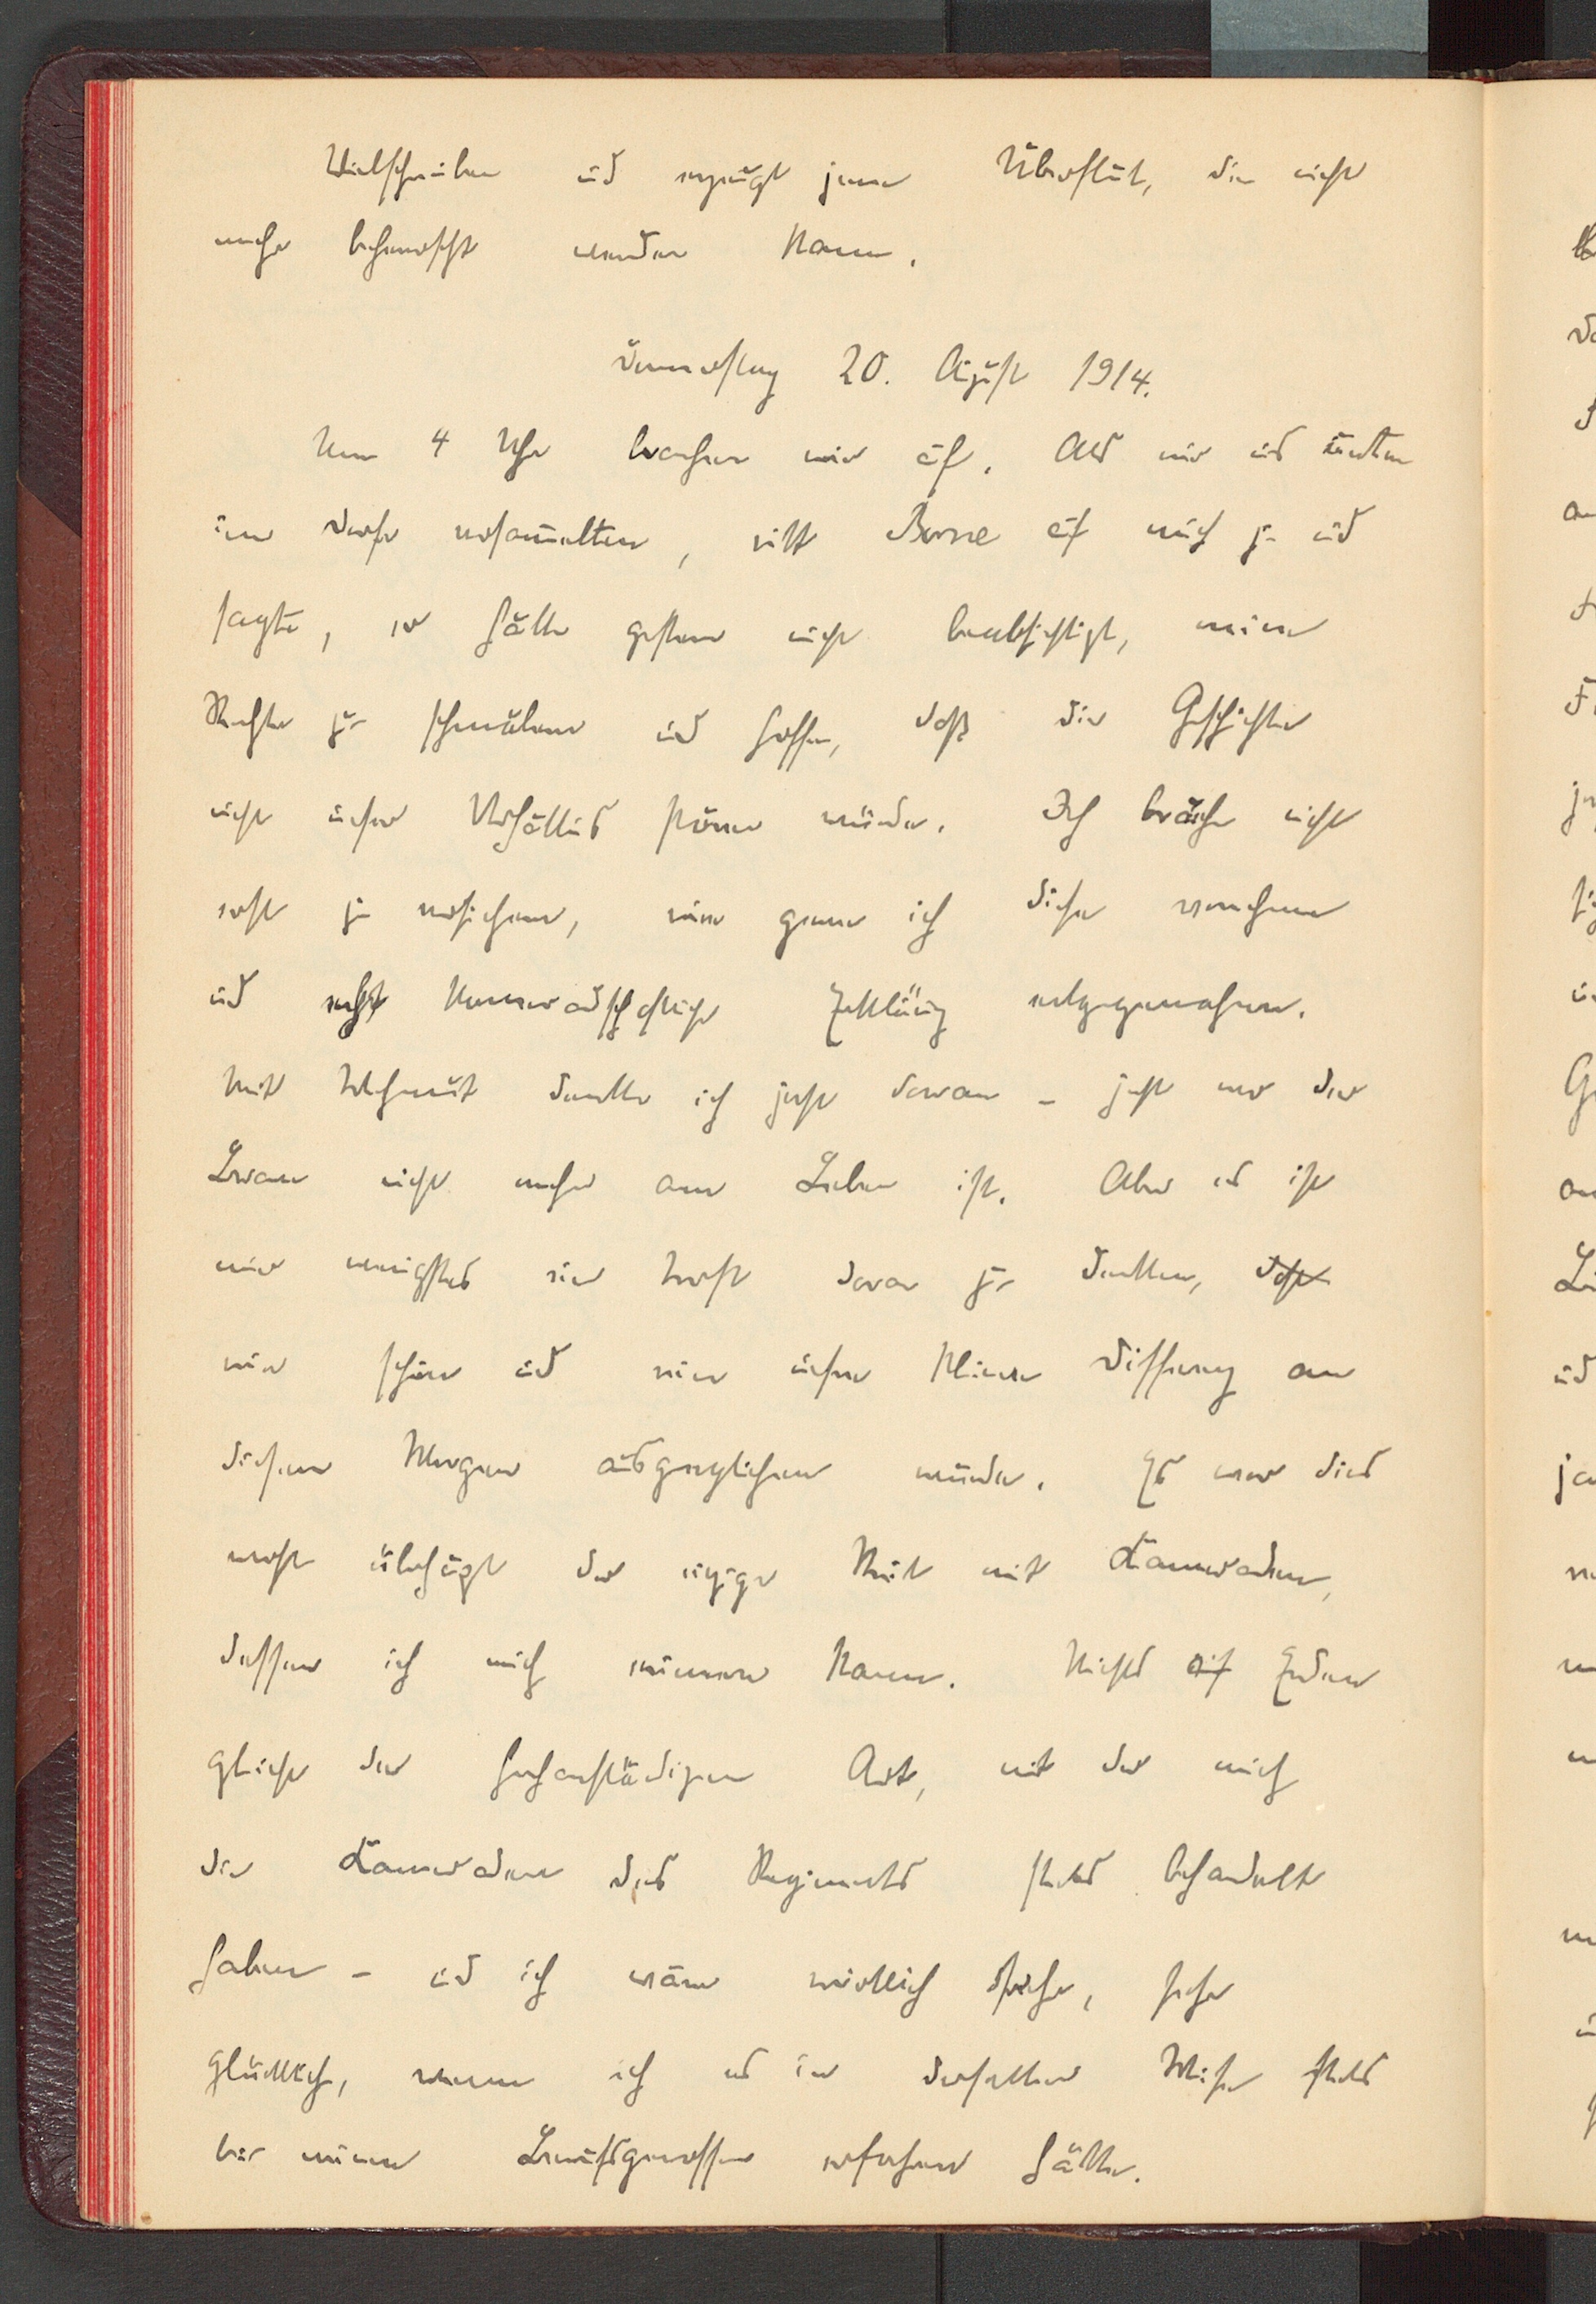 Vielschreiben und erzeugt jene Überflut, die nicht
mehr beherrscht werden kann.
Donnerstag 20. August 1914.
Um 4 Uhr brachen wir auf. Als wir uns unten
im Dorfe versammelten, ritt Borne auf mich zu und
sagte, er hätte gestern nicht beabsichtigt, meine
Rechte zu schmälern und hoffe, daß die Geschichte
nicht unser Verhältnis stören würde. Ich brauche nicht
erst zu versichern, wie gerne ich diese vornehme
und echt kameradschaftliche Erklärung entgegennahm.
Mit Wehmut denke ich jetzt daran – jetzt wo der
Brave nicht mehr am Leben ist. Aber es ist
mir wenigstens ein Trost daran zu denken,
wie schön und rein unsere kleine Differenz an
diesem Morgen ausgeglichen wurde. Es war dies
wohl überhaupt der einzige Streit mit Kameraden,
dessen ich mich erinnern kann. Nichts auf Erden
gleicht der hochanständigen Art, mit der mich
die Kameraden des Regiments stets behandelt
haben – und ich wäre wirklich sehr
glücklich, wenn ich es in derselben Weise stets
bei meinen Berufsgenossen erfahren hätte.